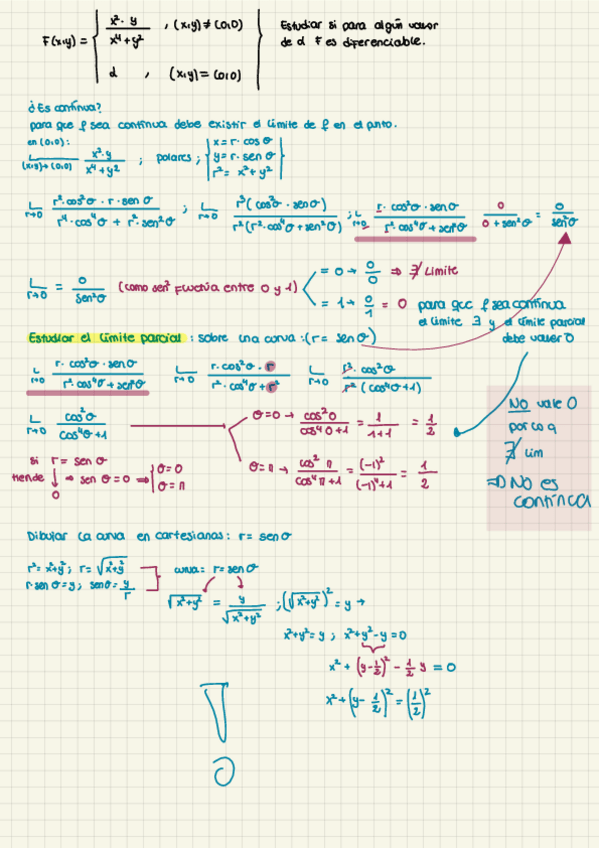 F(x,y) = { x²·y / x⁴+y² , (x,y)≠(0,0)
d , (x,y)=(0,0)
Estudiar si para algún valor
de d F es diferenciable.
¿Es continua?
para que f sea continua debe existir el límite de f en el punto.
en (0,0):
L (x,y)→(0,0) x²·y / x⁴+y² ; polares ; | x = r·cos σ
y = r·sen σ
r² = x²+y² |
L r→0 r²·cos²σ · r·sen σ / r⁴·cos⁴σ + r²·sen²σ ; L r→0 r³(cos²σ·senσ) / r²(r²·cos⁴σ+sen²σ) ; L r→0 r·cos²σ·senσ / r²·cos⁴σ+sen²σ 0 / 0+sen²σ = 0 / sen²σ
L r→0 = 0 / sen²σ (como sen² fluctúa entre 0 y 1)
= 0 → 0/0 ⇒ ∄ límite
= 1 → 0/1 = 0 para que f sea continua
el límite ∃ y el límite parcial
debe valer 0
Estudiar el límite parcial : sobre una curva :(r = sen σ)
L r→0 r·cos²σ·senσ / r²·cos⁴σ+sen²σ L r→0 r·cos²σ·r / r²·cos⁴σ+r² L r→0 r²·cos²σ / r²(cos⁴σ+1)
L r→0 cos²σ / cos⁴σ+1
σ=0 → cos²0 / cos⁴0+1 = 1 / 1+1 = 1/2
σ=π → cos²π / cos⁴π+1 = (-1)² / (-1)⁴+1 = 1/2
si r = sen σ
tiende ↓ → sen σ = 0 ⇒ { σ=0
0 σ=π
NO vale 0
porco q
∄ lim
⇒ NO es
continua
Dibujar la curva en cartesianas: r = sen σ
r² = x²+y² ; r = √x²+y²
r·sen σ = y ; senσ = y/r
curva: r = sen σ
√x²+y² = y / √x²+y² ; (√x²+y²)² = y →
x²+y² = y ; x²+y²-y = 0
x² + (y-1/2)² - 1/2 y = 0
x² + (y- 1/2)² = (1/2)²